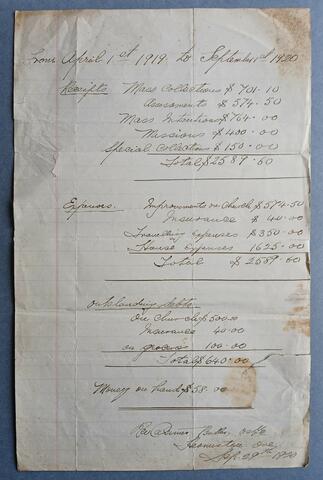 From April 1st 1919. to September 1st 1920
Receipts Mass Collections $ 701.10
Assessments $ 574.50
Mass Intentions $ 764.00
Missions $ 400.00
Special Collections $ 150.00
Total $ 2589.60
Expenses. Improvements on Church $ 574.50
Insurance $ 40.00
Travelling Expenses $ 350.00
House Expenses 1625.00
Total $ 2589.60
Outstanding Debts.
On Church $ 500.00
Insurance 40.00
on groceries 100.00
Total $ 640.00
Money on hand $ 58.00
Rev
Sept 29th 1920